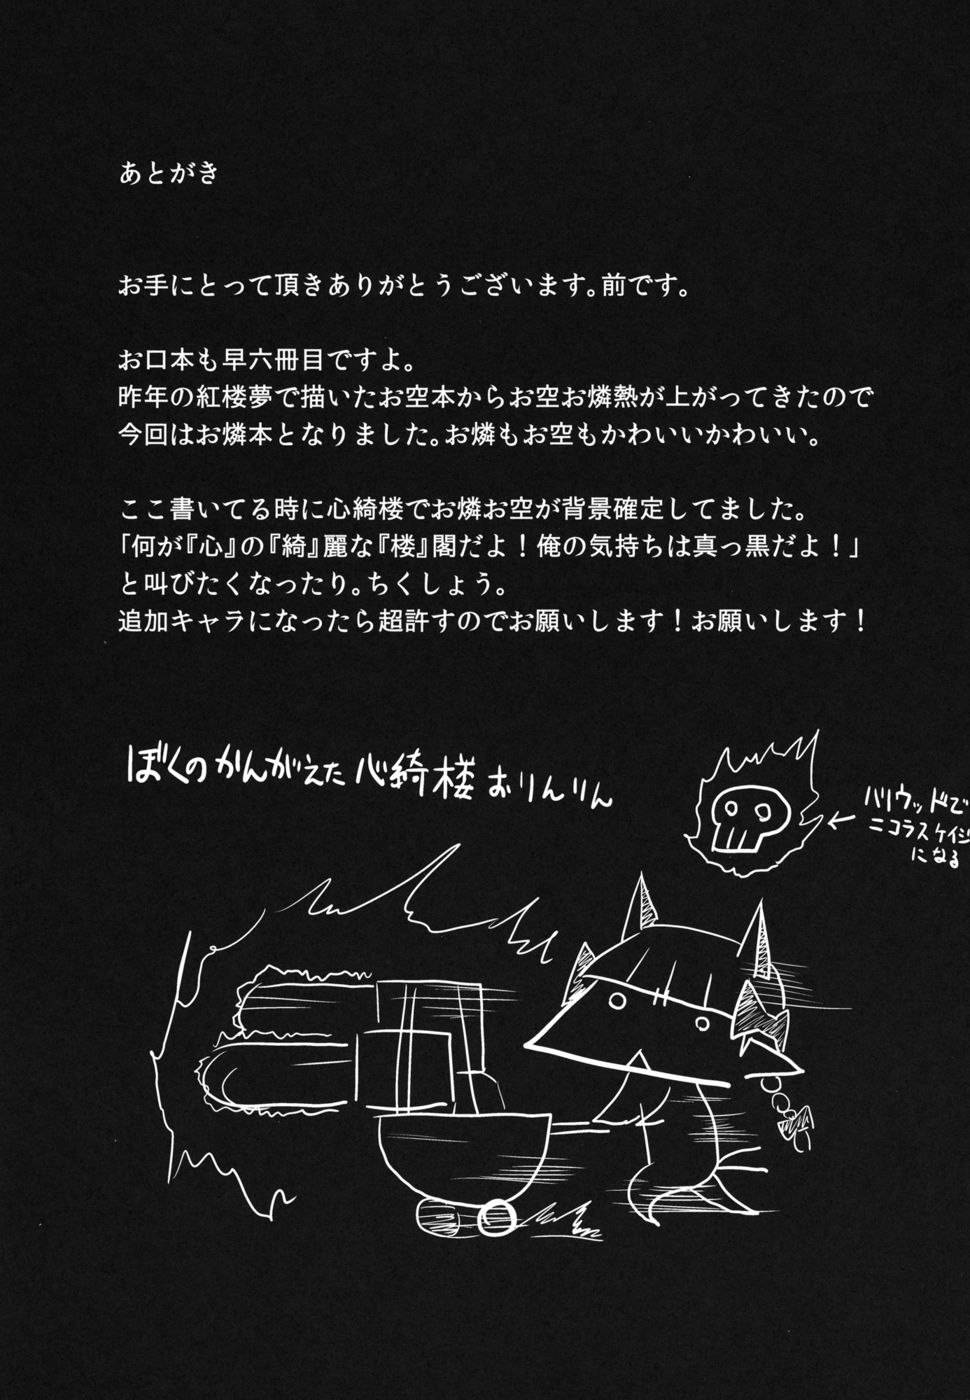 あとがき
お手にとって頂きありがとうございます。前です。
お口本も早六冊目ですよ。
昨年の紅楼夢で描いたお空本からお空お燐熱が上がってきたので
今回はお燐本となりました。お燐もお空もかわいいかわいい。
ここ書いてる時に心綺楼でお燐お空が背景確定してました。
「何が『心』の『綺』麗な『楼』閣だよ！俺の気持ちは真っ黒だよ！」
と叫びたくなったり。ちくしょう。
追加キャラになったら超許すのでお願いします！お願いします！
ぼくのかんがえた心綺楼おりんりん
ハリウッドで
ニコラスケイジ
になる